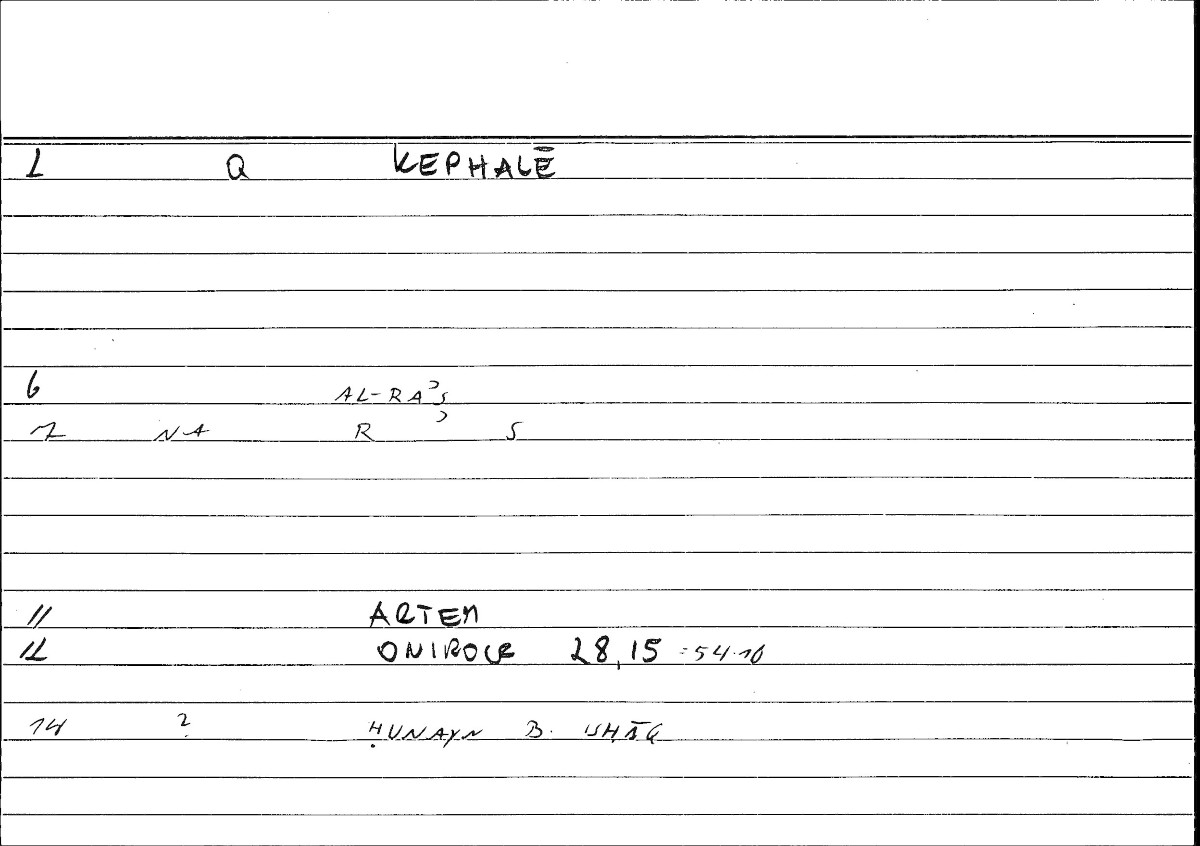 1 Q KEPHALĒ
6 AL-RAʾS
7 NA R ʾ S
11 ARTEM
12 ONIROCR 28,15 =54.10
14 ? ḤUNAYN B. ISḤĀQ